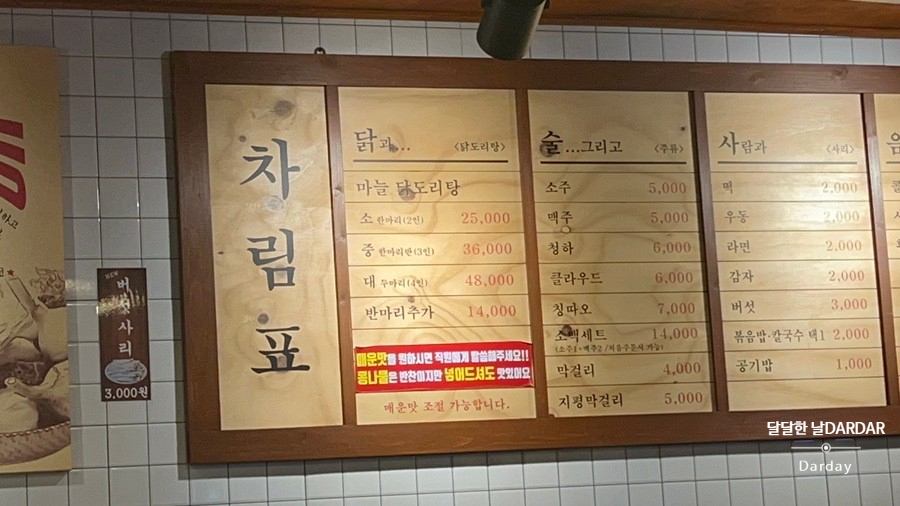 하고
NEW
버섯사리
3,000원
차림표
닭과... <닭도리탕>
마늘 닭도리탕
소 한마리(2인) 25,000
중 한마리반(3인) 36,000
대 두마리(4인) 48,000
반마리추가 14,000
매운맛을 원하시면 직원에게 말씀해주세요!!
콩나물은 반찬이지만 넣어드셔도 맛있어요
매운맛 조절 가능합니다.
술...그리고 <주류>
소주 5,000
맥주 5,000
청하 6,000
클라우드 6,000
칭따오 7,000
소맥세트 14,000
(소주1+맥주2 / 처음주문시 가능)
막걸리 4,000
지평막걸리 5,000
사람과 <사리>
떡 2,000
우동 2,000
라면 2,000
감자 2,000
버섯 3,000
볶음밥·칼국수 택1 2,000
공기밥 1,000
음
달달한 날DARDAR
Darday